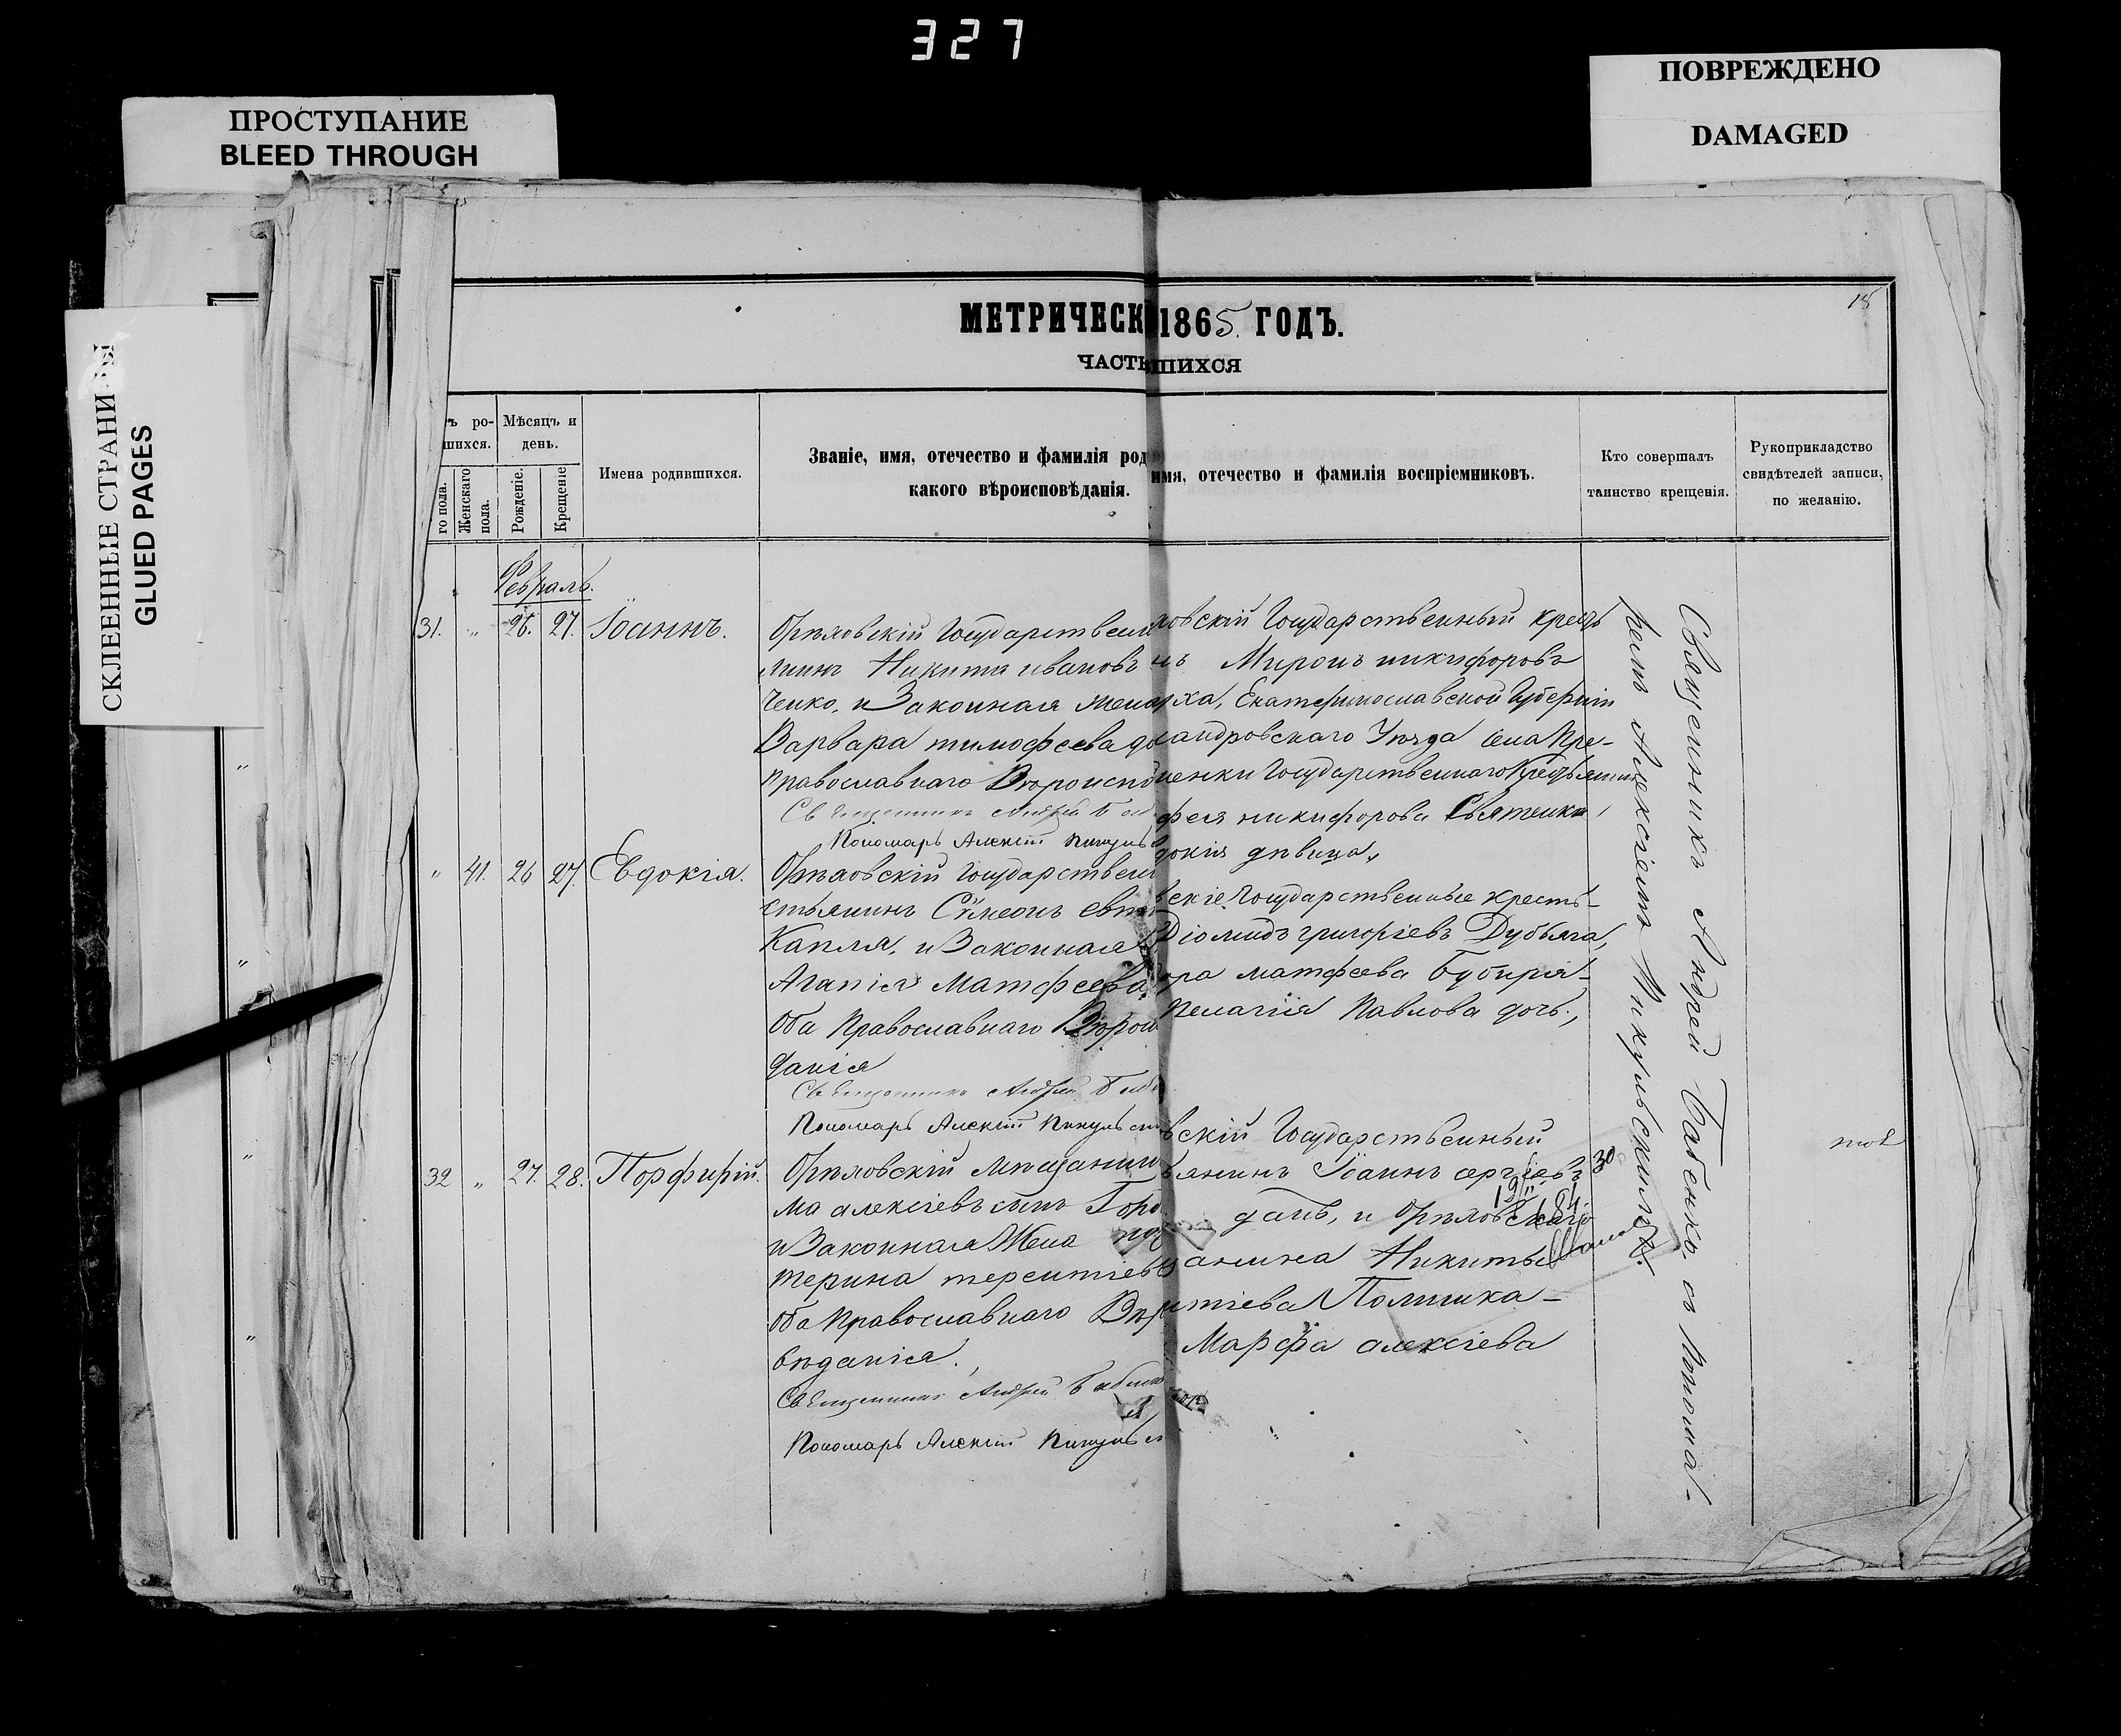 327
ПРОСТУПАНИЕ
BLEED THROUGH
ПОВРЕЖДЕНО
DAMAGED
СКЛЕЕННЫЕ СТРАНИ ЦЫ
GLUED PAGES
15
МЕТРИЧЕСК 1865 ГОДЪ.
ЧАСТЬ ШИХСЯ
ъ ро-
шихся.
го пола.
Женскаго пола.
Мѣсяцъ и день.
Рожденіе.
Крещеніе
Имена родившихся.
Званіе, имя, отечество и фамилія род
какого вѣроисповѣданія.
имя, отечество и фамилія воспріемниковъ.
Кто совершалъ
таинство крещенія.
Рукоприкладство
свидѣтелей записи,
по желанію.
Февраль.
31. " 26. 27. Іоаннъ.
Орѣховскій Государствен
Никита ивановъ
ченко, и Законная жена
Варвара тимофеева до
православнаго Вѣроиспо
Священникъ Андрей Баб
Пономарь Алексій Пикуль
ховскій Государственный крестъ
нъ Миронъ никифоровъ
ха, Екатеринославской Губерніи
андровскаго Уѣзда села Пре-
ненки Государственнаго Крестьянина
фея никифорова Святенка,
докія дѣвица,
" 41. 26 27. Евдокія.
Орѣховскій Государствен
стьянинъ Сѵмеонъ
Капля, и Законная
Агапія Матфеева
Оба Православнаго Вѣрои
данія
Священникъ Андрей Баб
Пономарь Алексій Пикульс
вскіе Государственные кресть-
Діомидъ григоріевъ Дубяга,
ора матфеева
Пелагія Павлова дочь,
32 " 27. 28. Порфирій.
Орѣховскій мѣщанин
ма алексіевъ сынъ Горо
и Законная Жена
терина терентіев
оба Православнаго Вѣр
вѣданія.,
Священникъ Андрей Бабенко
Пономарь Алексій Пикульс
вскій Государственный
янинъ Іоаннъ сергіевъ
дань, и Орѣховскаго
анина Никиты
тіева
Марфа алексіева
30
Священникъ Андрей Бабенко, съ Понома-
ремъ Алексіемъ Пикульскимъ.